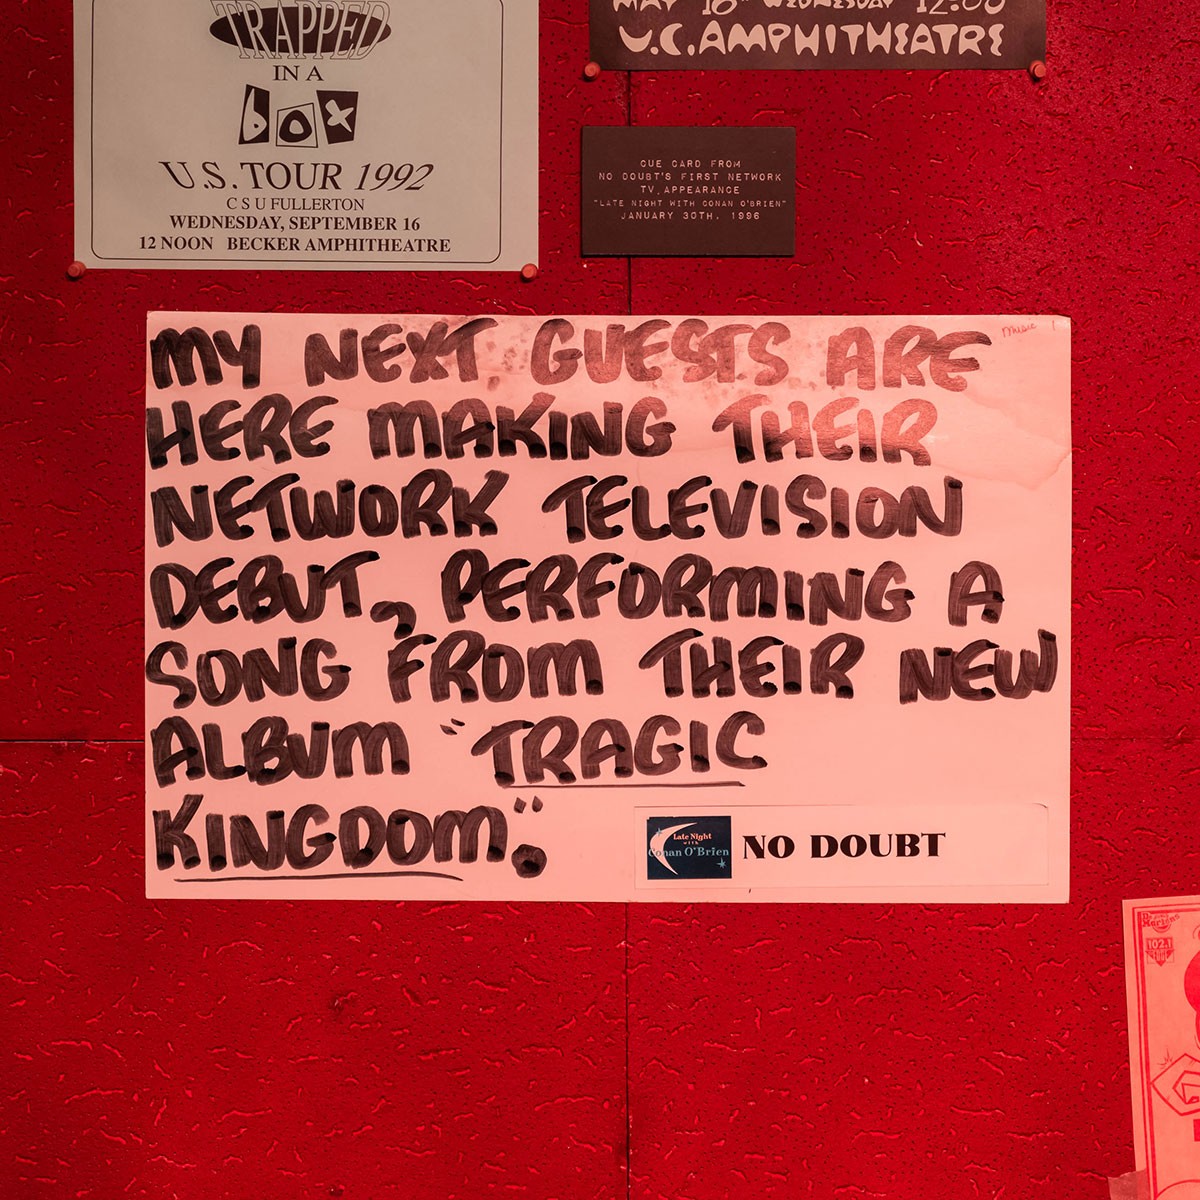 TRAPPED
IN A
box
U.S. TOUR 1992
C S U FULLERTON
WEDNESDAY, SEPTEMBER 16
12 NOON BECKER AMPHITHEATRE
MAY 16th WEDNESDAY 12:00
U.C. AMPHITHEATRE
CUE CARD FROM
NO DOUBT'S FIRST NETWORK
TV APPEARANCE
"LATE NIGHT WITH CONAN O'BRIEN"
JANUARY 30TH, 1996
Music 1
MY NEXT GUESTS ARE
HERE MAKING THEIR
NETWORK TELEVISION
DEBUT, PERFORMING A
SONG FROM THEIR NEW
ALBUM "TRAGIC
KINGDOM".
Late Night
with
Conan O'Brien
NO DOUBT
Dr. Martens
102.1